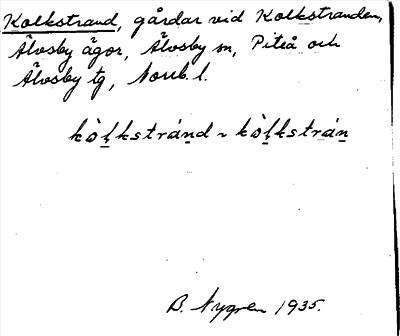 Kolkstrand, gårdar vid Kolkstranden,
Älvsby ägor, Älvsby sn, Piteå och
Älvsby tg, Norrb. l.
kò̀l̲kstrán̲d ~ kò̀l̲kstrán̲
B. Nygren 1935.